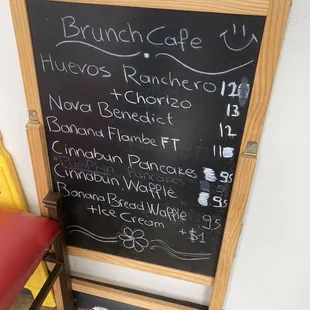 Brunch Cafe
Huevos Ranchero 12
+ Chorizo 13
Nova Benedict 12
Banana Flambe FT 11
Cinnabun Pancakes 9.5
Pumpkin Pancakes
Cinnabun Waffle 9.5
Banana Bread Waffle 9.5
+ Ice Cream +$1